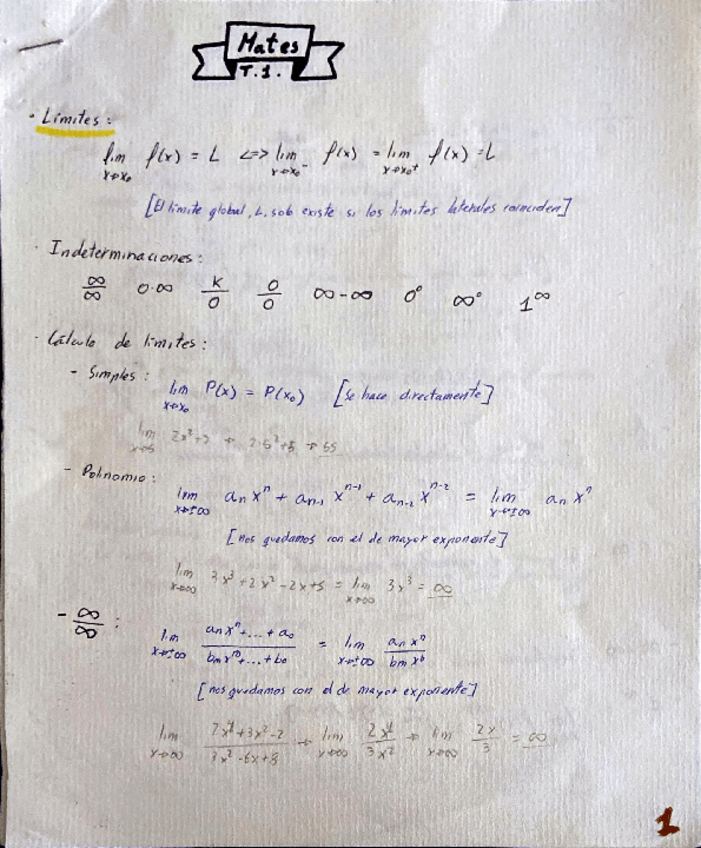 Mates
T.1.
· Límites:
lim x→x₀ f(x) = L <=> lim x→x₀⁻ f(x) = lim x→x₀⁺ f(x) = L
[El límite global, L, solo existe si los límites laterales coinciden]
· Indeterminaciones:
∞/∞ 0·∞ K/0 0/0 ∞-∞ 0⁰ ∞⁰ 1^∞
· Cálculo de límites:
- Simples:
lim x→x₀ P(x) = P(x₀) [se hace directamente]
- Polinomio:
lim x→±∞ aₙ xⁿ + aₙ₋₁ xⁿ⁻¹ + aₙ₋₂ xⁿ⁻² = lim x→±∞ aₙ xⁿ
[nos quedamos con el de mayor exponente]
lim x→∞ 3x³+2x²-2x+5 = lim x→∞ 3x³ = ∞
- ∞/∞ :
lim x→±∞ (aₙxⁿ+...+a₀)/(bmxᵐ+...+b₀) = lim x→±∞ aₙxⁿ/bm
[nos quedamos con el de mayor exponente]
lim x→∞ /(3x²-6x+8) → lim x→∞ /3x² → lim x→∞ 2x/3 = ∞
1